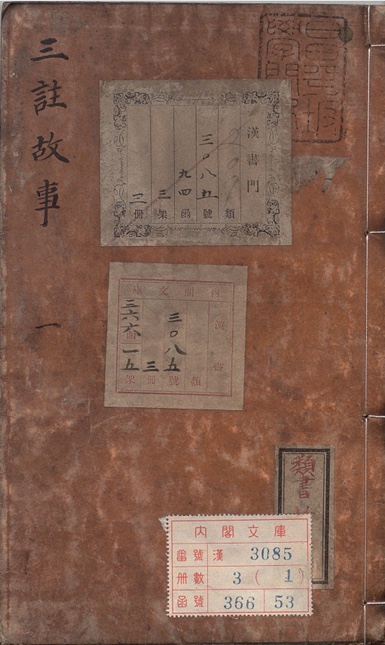 三註故事
一
漢書門
類
三〇八五
號
九四
函
三
架
三
冊
三〇八五
號
三
冊
三六六
一五
架
類書
內閣文庫
番號 漢 3085
冊數 3 (1)
函號 366 53